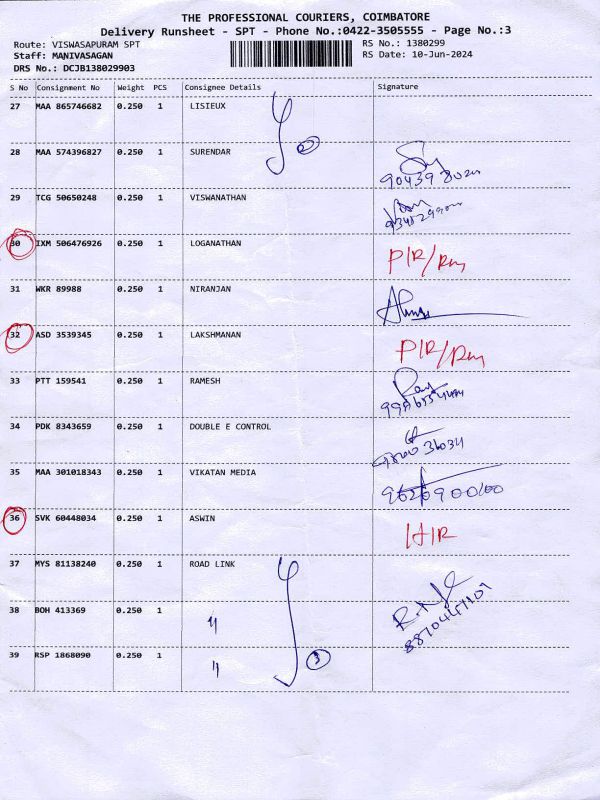 THE PROFESSIONAL COURIERS, COIMBATORE
Delivery Runsheet - SPT - Phone No.:0422-3505555 - Page No.:3
Route: VISWASAPURAM SPT RS No.: 1380299
Staff: MANIVASAGAN RS Date: 10-Jun-2024
DRS No.: DCJB138029903
S No Consignment No Weight PCS Consignee Details Signature
27 MAA 865746682 0.250 1 LISIEUX
2
28 MAA 574396827 0.250 1 SURENDAR
29 TCG 50650248 0.250 1 VISWANATHAN
30 IXM 506476926 0.250 1 LOGANATHAN
31 WKR 89988 0.250 1 NIRANJAN
32 ASD 3539345 0.250 1 LAKSHMANAN
33 PTT 159541 0.250 1 RAMESH
34 PDK 8343659 0.250 1 DOUBLE E CONTROL
35 MAA 301018343 0.250 1 VIKATAN MEDIA
36 SVK 60448034 0.250 1 ASWIN
37 MYS 81138240 0.250 1 ROAD LINK
38 BOH 413369 0.250 1 "
39 RSP 1868090 0.250 1 " 3